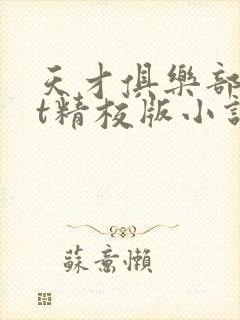 天才俱樂部
t精校版小說
蘇意懶